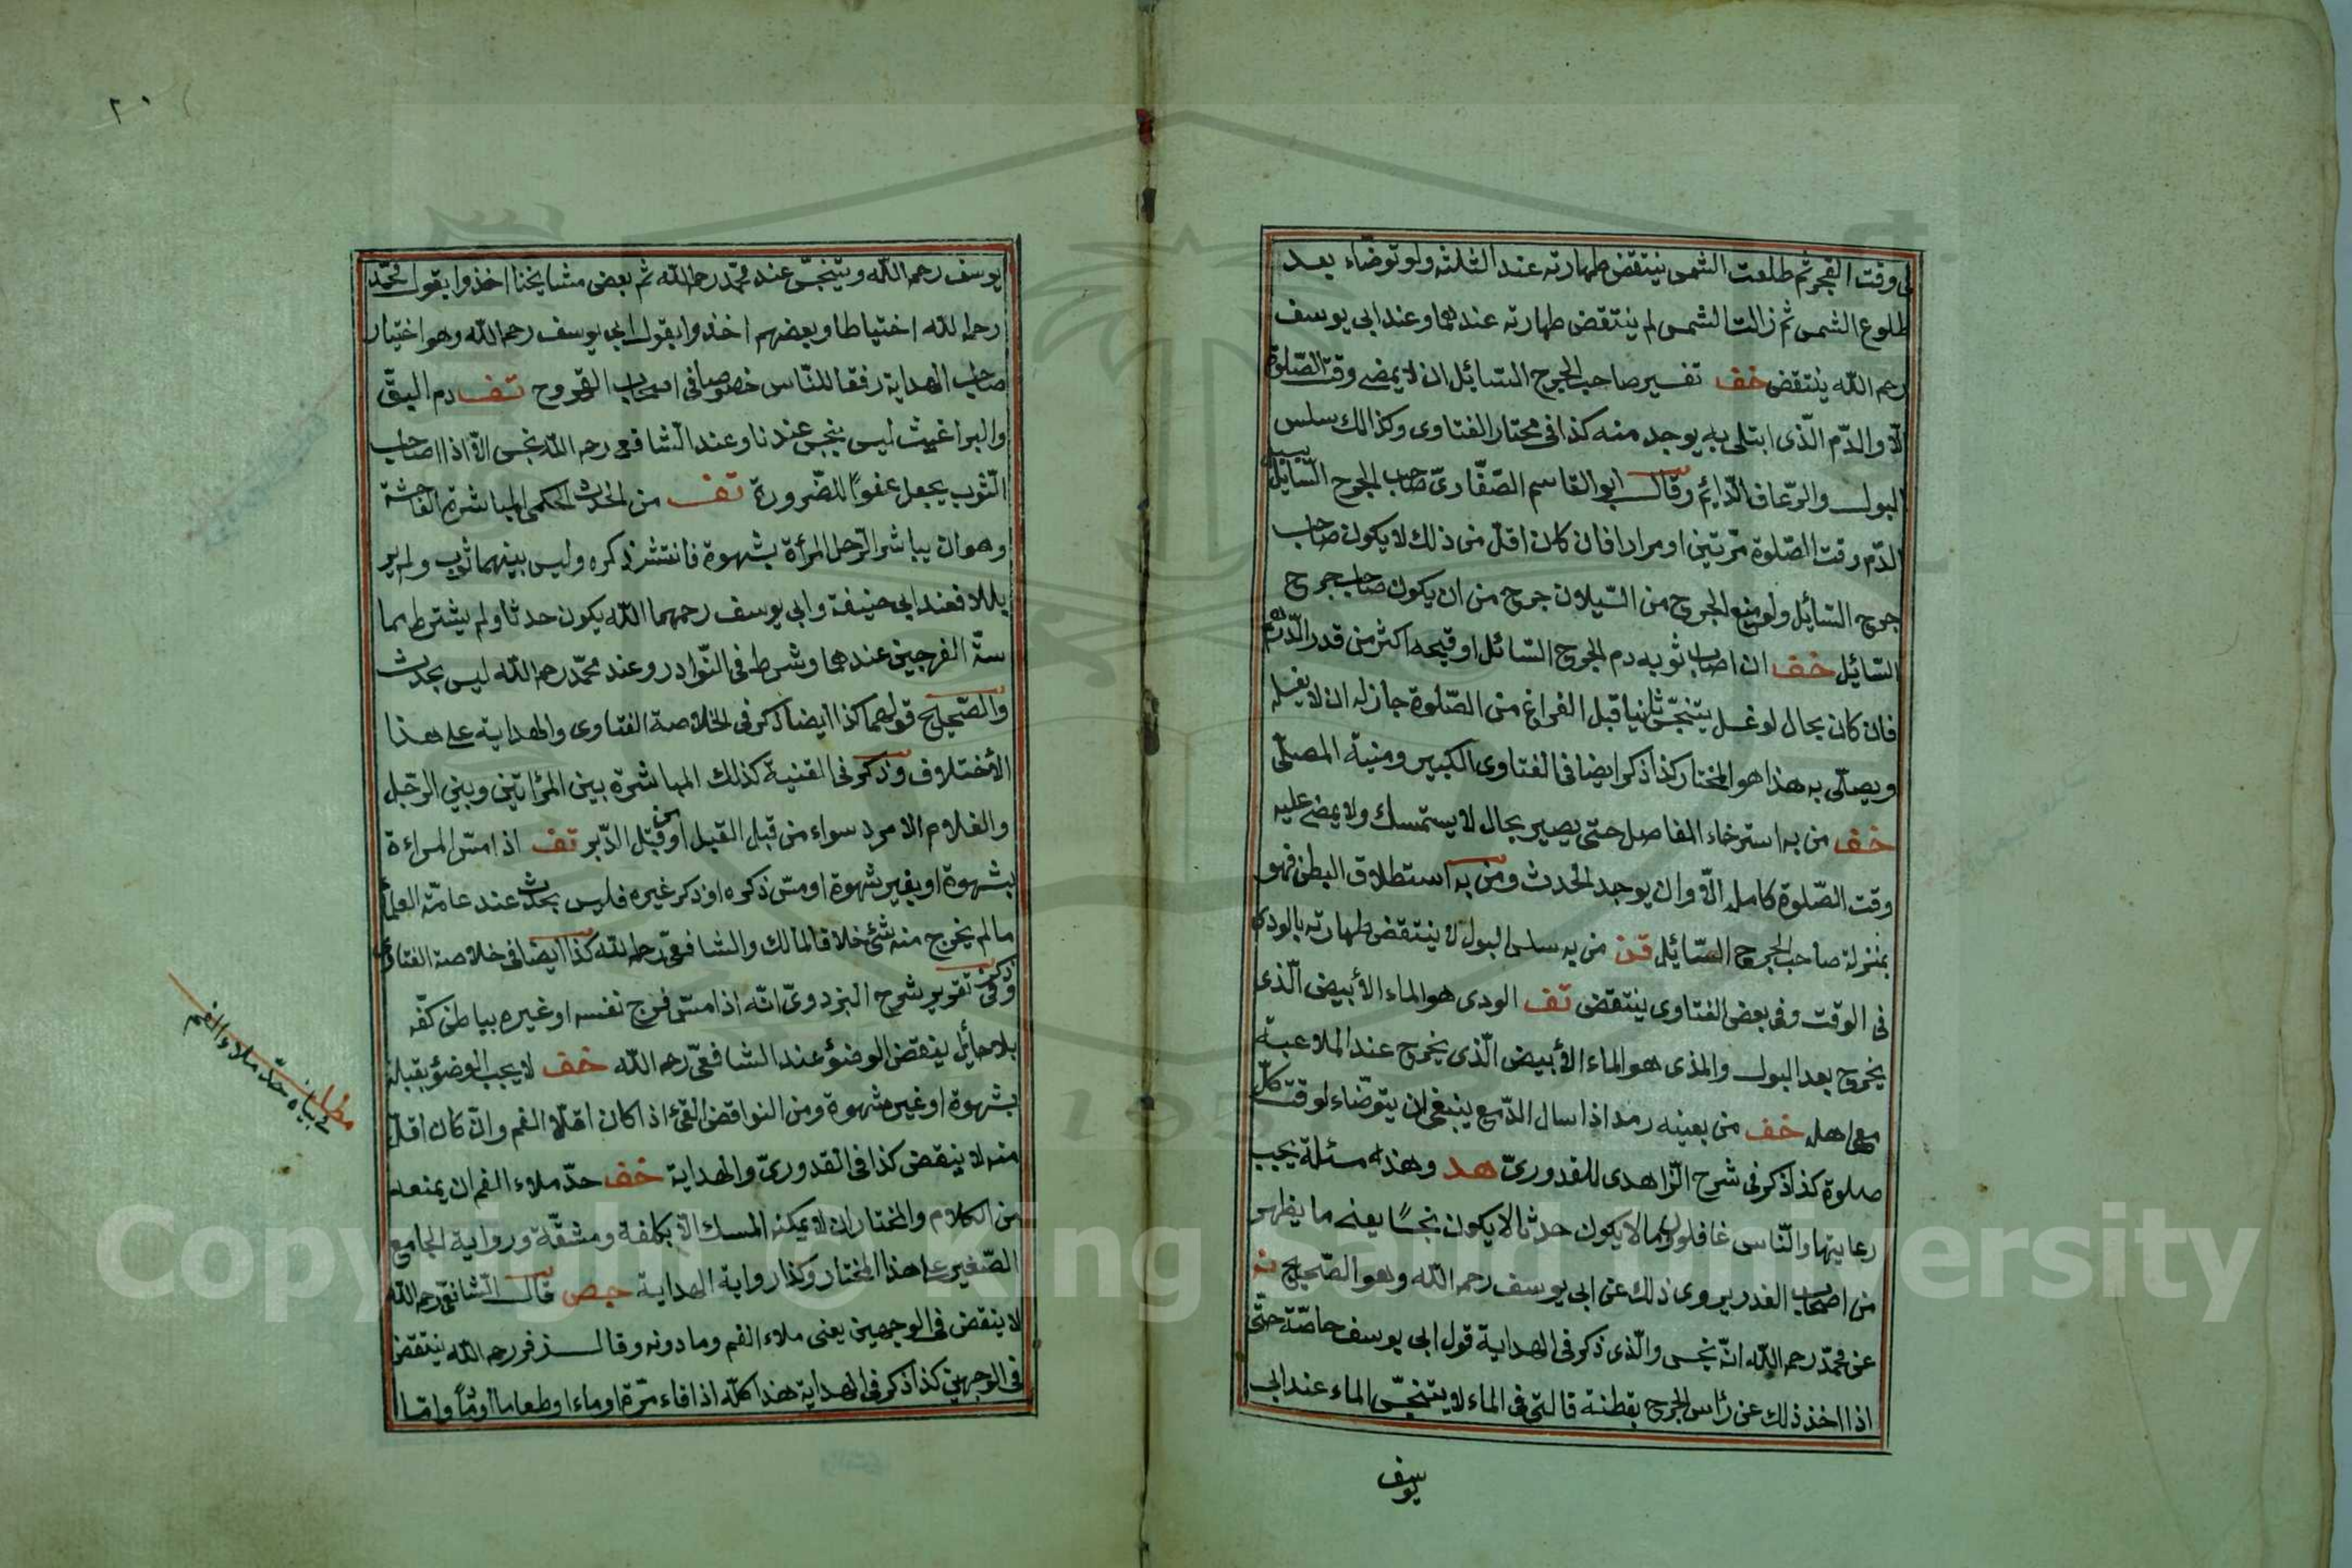 فى وقت الفجر ثم طلعت الشمس ينتقض طهارته عند الثلثة ولو توضّاء بعد
طلوع الشمس ثم زالت الشمس لم ينتقض طهارته عندهما وعند ابى يوسف
رحمه الله ينتقض خف تفسير صاحب الجرح السّائل ان لا يمضى وقت الصّلوة
الّا والدّم الّذى ابتلى به يوجد منه كذا فى مختار الفتاوى وكذالك سلس
البول والرّعاف الدّايم وقال ابو القاسم الصّفّارىّ صاحب الجرح السّايل
الدّم وقت الصّلوة مرّتين او مرارا فان كان اقلّ من ذلك لا يكون صاحب
جرح السّايل ولو منع الجرح من السّيلان خرج من ان يكون صاحب جرح
السّايل خف ان اصاب ثوبه دم الجرح السّائل او قيحه اكثر من قدر الدّرهم
فان كان بحال لو غسل يتنجّس ثانيا قبل الفراغ من الصّلوة جاز له ان لا يغسله
ويصلّى به هذا هو المختار كذا ذكر ايضا فى الفتاوى الكبير ومنية المصلّى
خف من به استرخاء المفاصل حتى يصير بحال لا يستمسك ولا يمضى عليه
وقت الصّلوة كاملة الّا وان يوجد الحدث ومن به استطلاق البطن فهو
بمنزلة صاحب الجرح السّايل قن من به سلس البول لا ينتقض طهارته بالودى
فى الوقت وفى بعض الفتاوى ينتقض تف الودى هو الماء الأبيض الّذى
يخرج بعد البول والمذى هو الماء الأبيض الّذى يخرج عند الملاعبة
مع اهله خف من بعينه رمد اذا سال الدّمع ينبغى ان يتوضّاء لوقت كلّ
صلوة كذا ذكر فى شرح الزّاهدى للقدورىّ هد وهذه مسئلة يجب
رعايتها والنّاس غافلون وما لا يكون حدثا لا يكون نجسًا يعنى ما يظهر
من اصحاب العذر يروى ذلك عن ابى يوسف رحمه الله وهو الصّحيح
عن محمّد رحمه الله انّه نجس والّذى ذكر فى الهداية قول ابى يوسف خاصّة حتّى
اذا اخذ ذلك عن رأس الجرح بقطنة فالقى فى الماء لا يتنجّس الماء عند ابى
يوسف
٢٠
يوسف رحمه الله ويتنجّس عند محمّد رحمه الله ثم بعض مشايخنا اخذوا بقول محمّد
رحمه الله احتياطا وبعضهم اخذوا بقول ابى يوسف رحمه الله وهو اختيار
صاحب الهداية رفقا للنّاس خصوصا فى اصحاب القروح تف دم البقّ
والبراغيث ليس بنجس عندنا وعند الشافعى رحمه الله نجس الّا اذا اصاب
الثّوب يجعل عفوًا للضّرورة تف من الحدث الحكمى المباشرة الفاحشة
وهو ان يباشر الرّجل المرأة بشهوة فانتشر ذكره وليس بينهما ثوب ولم ير
بللا فعند ابى حنيفة وابى يوسف رحمهما الله يكون حدثا ولم يشترط مما
سّة الفرجين عندهما وشرط فى النّوادر وعند محمّد رحمه الله ليس بحدث
والصّحيح قولهما كذا ايضا ذكر فى الخلاصة الفتاوى والهداية على هذا
الأختلاف وذكر فى القنية كذلك المباشرة بين المرأتين وبين الرّجل
والغلام الامرد سواء من قبل القبل او من قبل الدّبر تف اذا مسّ المراءة
بشهوة او بغير شهوة او مسّ ذكره او ذكر غيره فليس بحدث عند عامّة العلماء
ما لم يخرج منه شئ خلافا لمالك والشافعىّ رحمه الله كذا ايضا فى خلاصة الفتاوى
وذكر فى تقرير شرح البزدوىّ انّه اذا مسّ فرج نفسه او غيره بباطن كفّه
بلا حائل ينقض الوضوء عند الشافعىّ رحمه الله خف لا يجب الوضؤ بقبلة
بشهوة او غير شهوة ومن النواقض القئ اذا كان املاء الفم وان كان اقلّ
منه لا ينقض كذا فى القدورىّ والهداية خف حدّ ملاء الفم ان يمنعه
من الكلام والمختار ان لا يمكنه المسك الّا بكلفة ومشقّة ورواية الجامع
الصّغير على هذا المختار وكذا رواية الهداية حص قال الشافعىّ رحمه الله
لا ينقض فى الوجهين يعنى ملاء الفم وما دونه وقال زفر رحمه الله ينتقض
فى الوجهين كذا ذكر فى الهداية هذا كلّه اذا قاء مرّة او ماء او طعاما او دمًا وامّا
مطلب
فى بيان حدّ ملاء الفم
Copyright © King Saud University
195